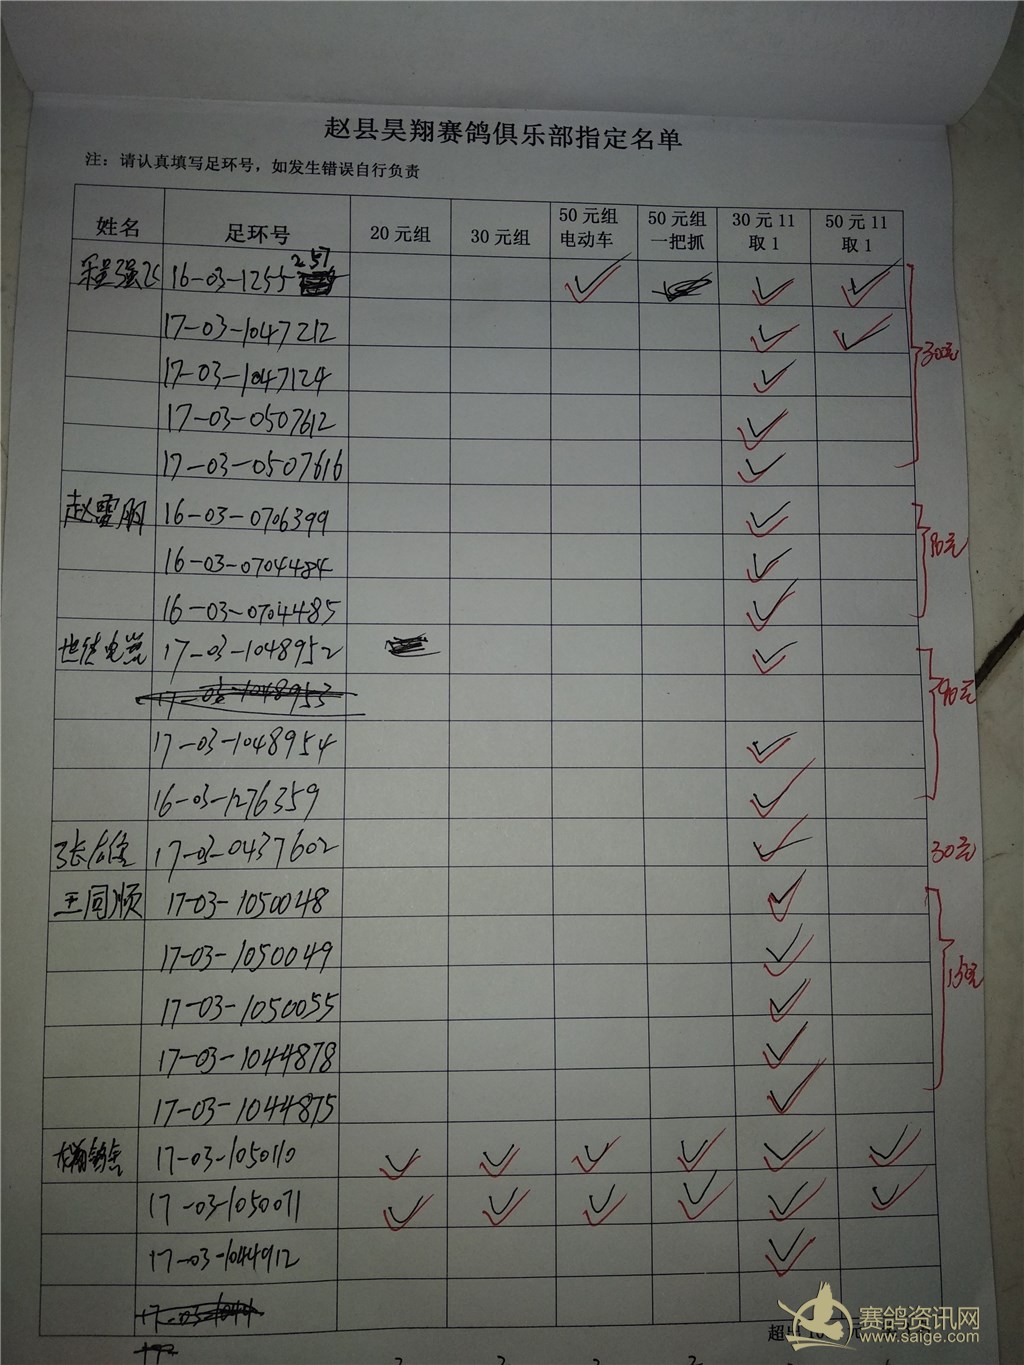 赵县昊翔赛鸽俱乐部指定名单
注：请认真填写足环号，如发生错误自行负责
姓名 足环号 20元组 30元组 50元组电动车 50元组一把抓 30元11取1 50元11取1
16-03-1255 257 ✓ ✓ ✓
17-03-1047212 ✓ ✓
17-03-1047124 ✓
17-03-0507612 ✓
17-03-0507616 ✓
300元
赵雪朋 16-03-0706399 ✓
16-03-0704484 ✓
16-03-0704485 ✓
90元
17-03-1048952 ✓
17-03-1048953
17-03-1048954 ✓
16-03-1276359 ✓
90元
17-03-0437602 ✓ 30元
王同顺 17-03-1050048 ✓
17-03-1050049 ✓
17-03-1050055 ✓
17-03-1044878 ✓
17-03-1044875 ✓
150元
17-03-1050110 ✓ ✓ ✓ ✓ ✓ ✓
17-03-1050071 ✓ ✓ ✓ ✓ ✓ ✓
17-03-1044912 ✓
赛鸽资讯网
www.saige.com